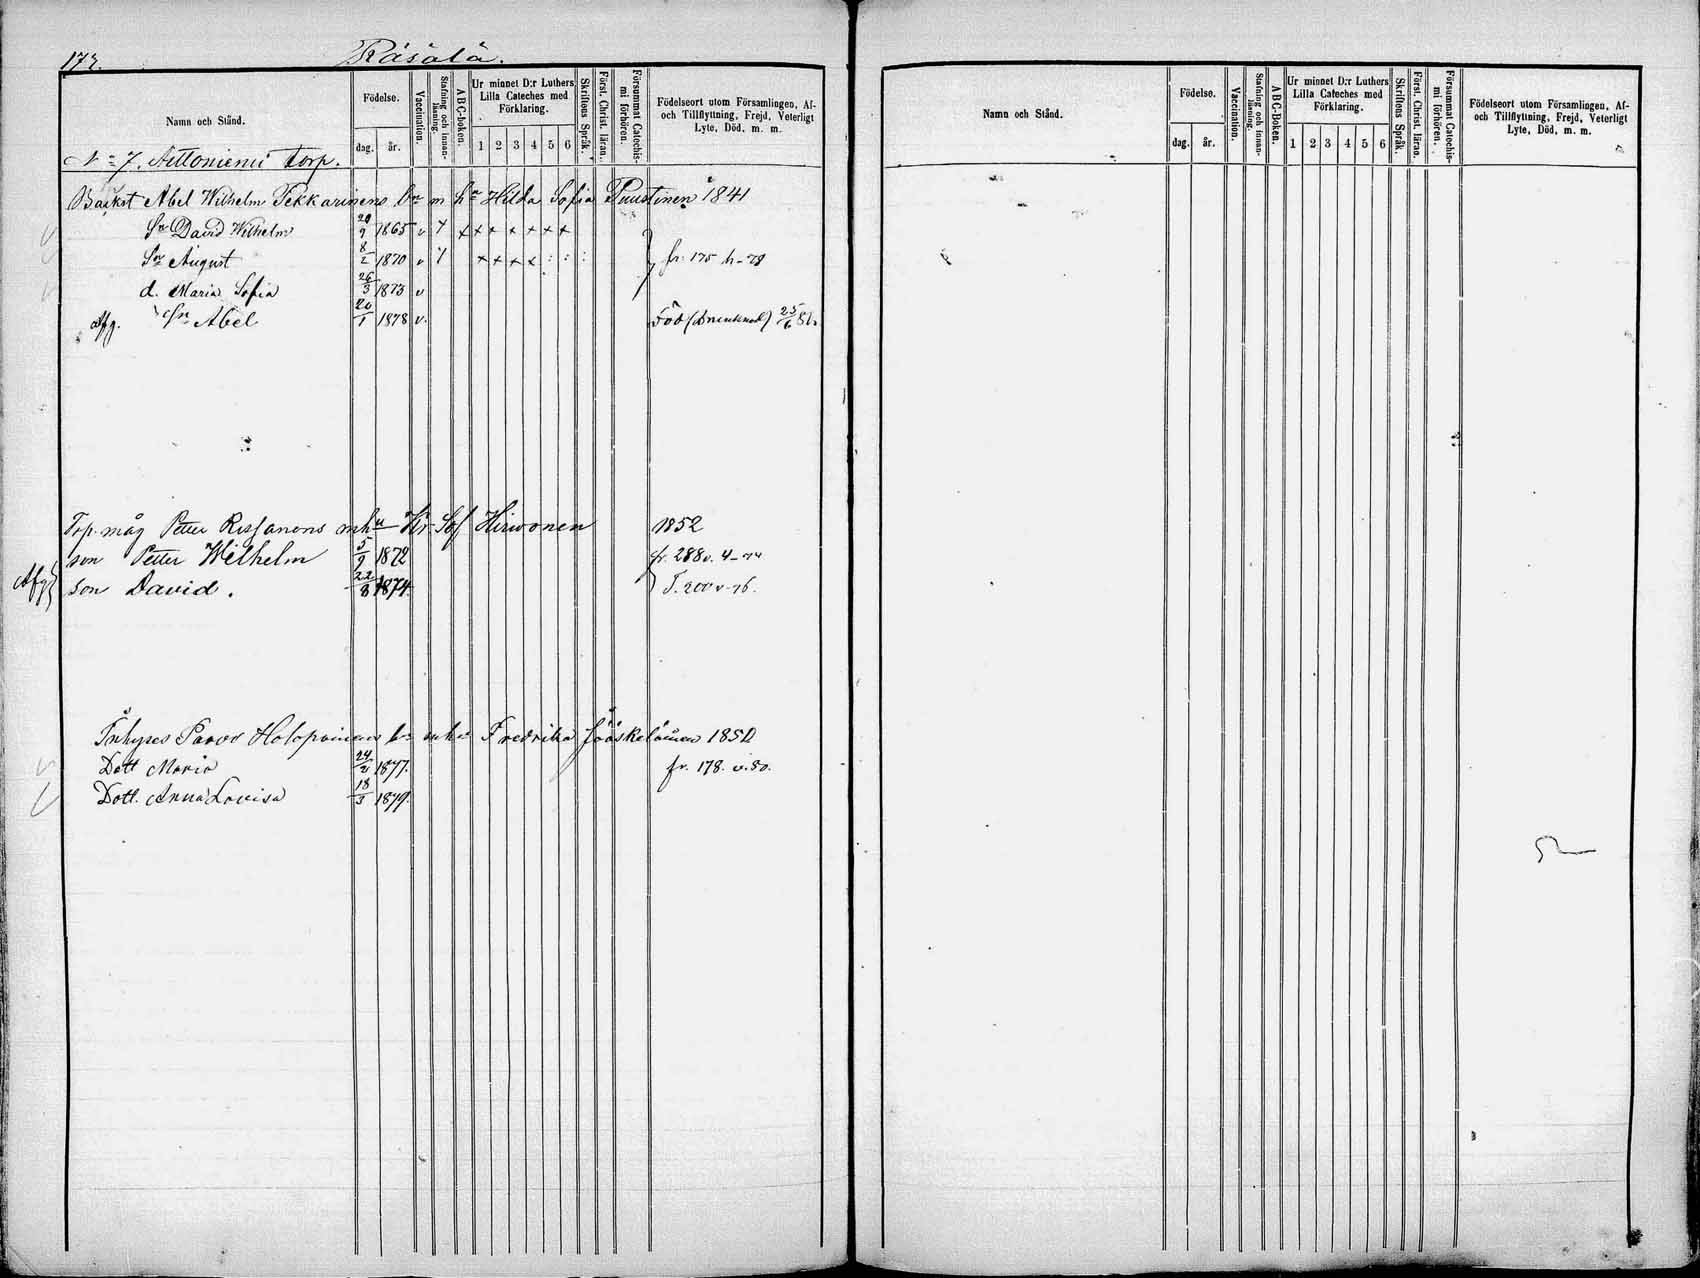 172. Räsälä.
Namn och Stånd.
Födelse.
dag. år.
Vaccination.
Stafning och innan-läsning.
ABC-boken.
Ur minnet D:r Luthers
Lilla Cateches med
Förklaring.
1 2 3 4 5 6
Skriftens Språk.
Först. Christ. läran.
Försummat Catechis-mi förhören.
Födelseort utom Församlingen, Af-
och Tillflyttning, Frejd, Veterligt
Lyte, Död. m. m.
N:o 7. torp.
Abel Wilhelm Pekkarinens m hu Hilda Sofia Puustinen 1841
Sn David Wilhelm 29/9 1865 v
Sn August 8/2 1870 v fr. 175 h-78
d. Maria Sofia 26/3 1873 v
Afg. Sn Abel 20/1 1878 v. Död (drunknad) 25/6
måg Petter Rissanens mhu Kr Sof Hirwonen 1852
son Petter Wilhelm 5/9 1872 fr. 288 v. 4-74
Afg son David. 22/8 1874. T. 200 v-76.
Inhyses Paavo Holopainens mhu Fredrika Jääskeläinen 1852
Dott Maria 24/2 1877. fr. 178. v. 80.
Dott. Anna Lovisa 18/3 1879.
Namn och Stånd.
Födelse.
dag. år.
Vaccination.
Stafning och innan-läsning.
ABC-Boken.
Ur minnet D:r Luthers
Lilla Cateches med
Förklaring.
1 2 3 4 5 6
Skriftens Språk.
Först. Christ. läran.
Försummat Catechis-mi förhören.
Födelseort utom Församlingen, Af-
och Tillflyttning, Frejd, Veterligt
Lyte, Död, m. m.